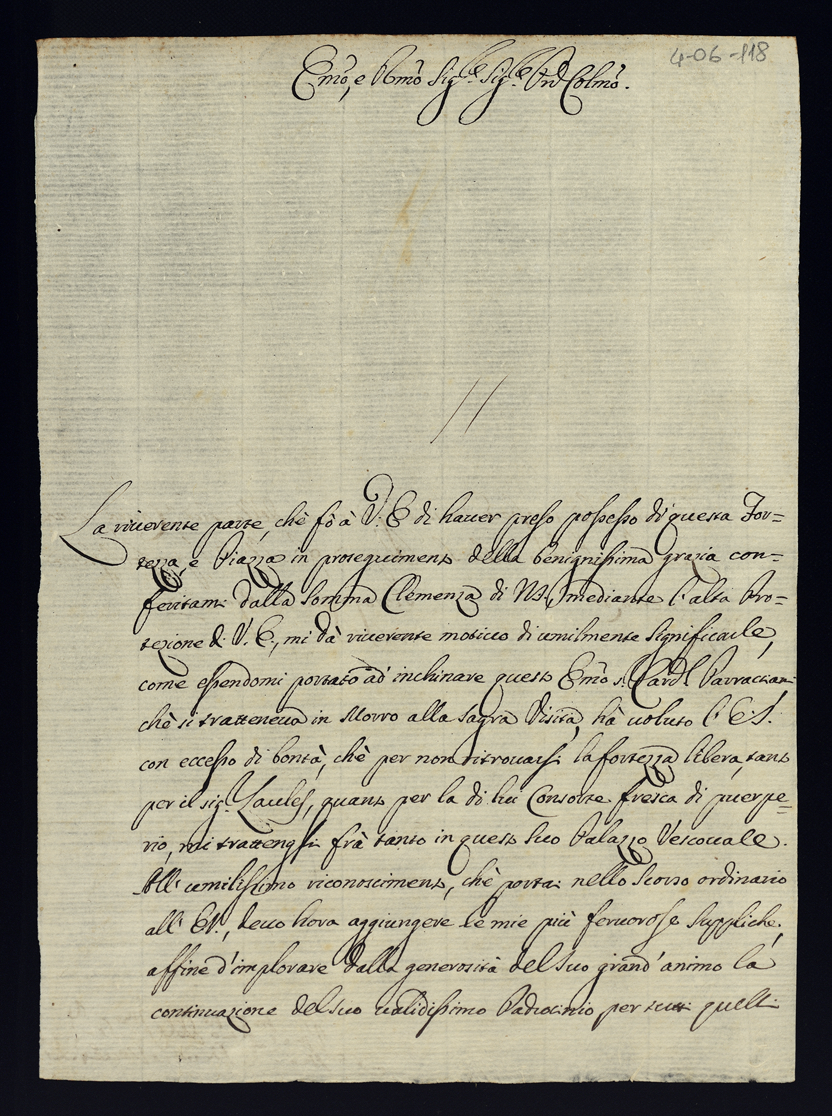 4-06-118
Emo, e Rmo Sigre Sigre Prõn Colmo.
La riverente parte, chè fò à V. E. di haver preso possesso di questa For=
tezza, e Piazza in proseguimento della benignissima grazia con=
feritami dalla somma Clemenza di NS. mediante l'alta Pro=
tezione di V. E., mi dà riverente motivo di umilmente significarle,
come essendomi portato ad' inchinare questo Emo s. Card.l Parracciani
chè si tratteneva in Morro alla sagra Visita, hà voluto l'E. S.
con eccesso di bontà, chè per non ritrovarsi la fortezza libera, tanto
per il sig.r Laules, quanto per la di lui Consorte fresca di puerpe=
rio, mi trattenghi frà tanto in questo suo Palazzo Vescovale.
All' umilissimo riconoscimento, chè portai nello scorso ordinario
all' EV., devo hora aggiungere le mie più fervorose suppliche,
affine d'implorare dalla generosità del suo grand'animo la
continuazione del suo validissimo Padrocinio per tutti quelli